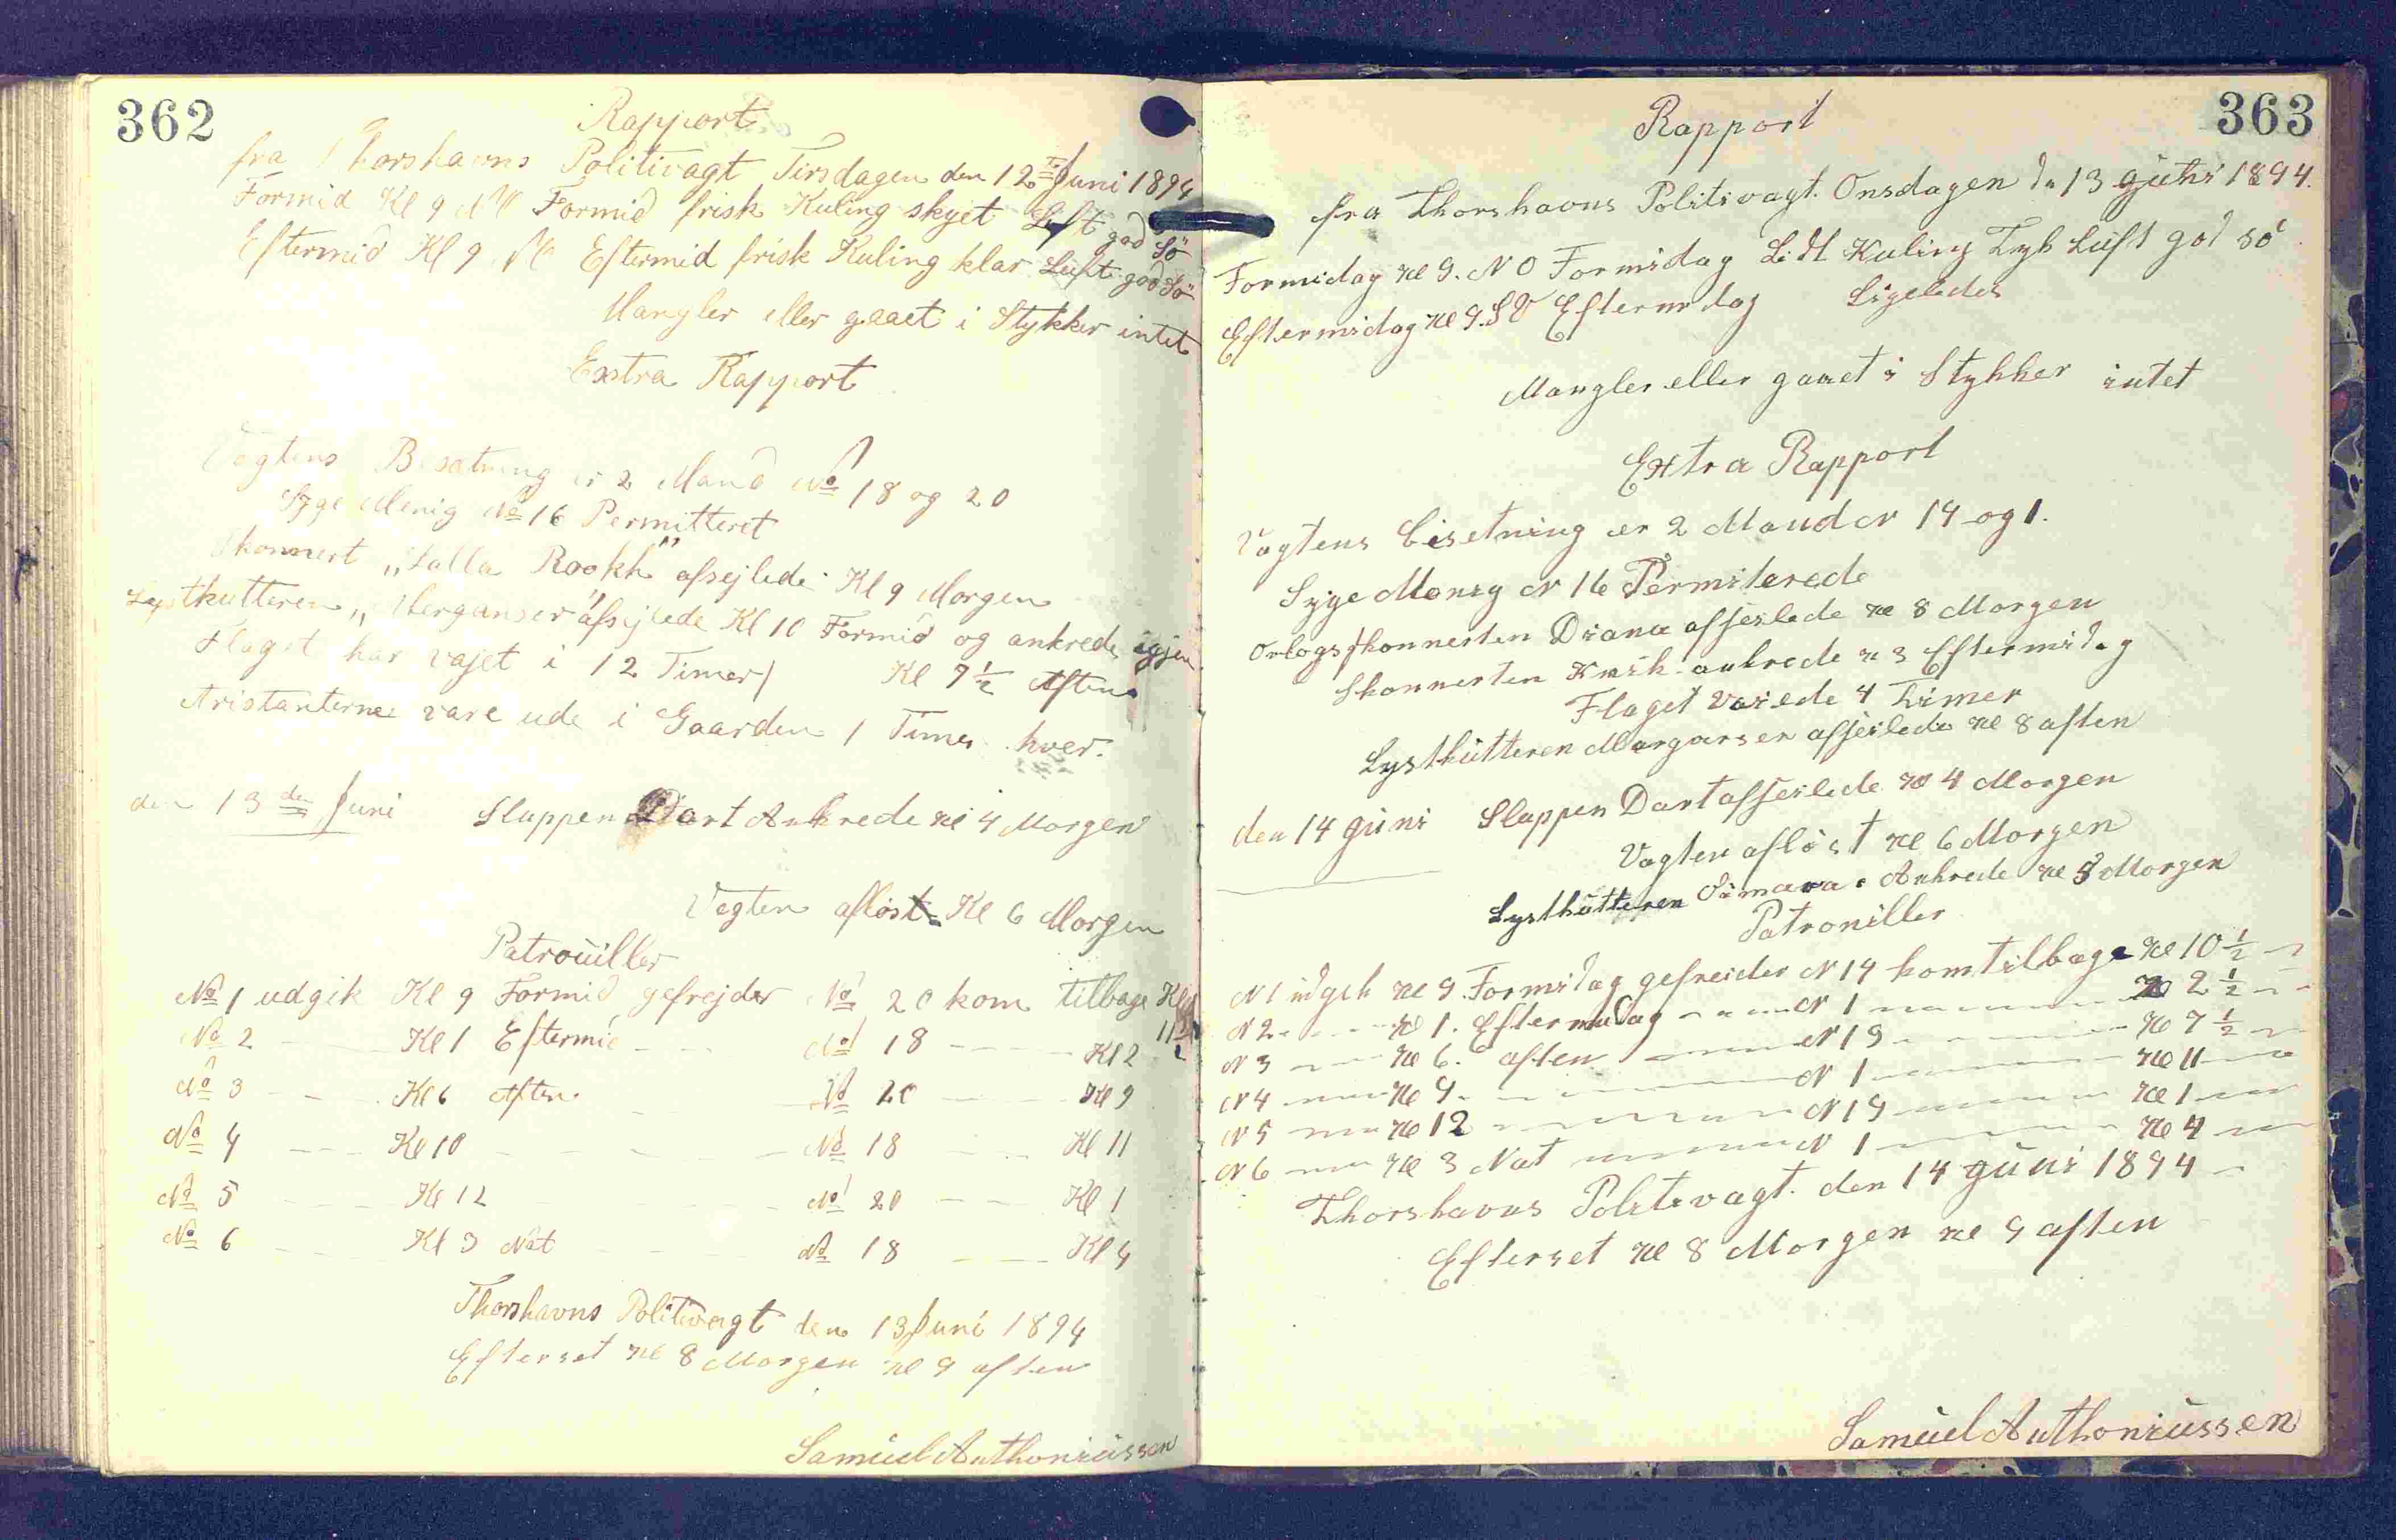 362
Rapport
fra Thorshavns Politivagt Tirsdagen den 12te Juni 1894
Formid Kl 9 NV Formid frisk Kuling skyet Luft god Sö
Eftermid Kl 9 Eftermid frisk Kuling klar Luft god Sö
Mangler eller gaaet i Stykker intet
Extra Rapport
Vagtens Besætning er 2 Mand No 18 og 20
Syge Menig No 16 Permitteret
Skonnert „Lalla Rookh" afsejlede Kl 9 Morgen
Lystkutteren „Merganser" afsejlede Kl 10 Formid og ankrede igjen
Flaget har vajet i 12 Timer / Kl 7½ Aften
Aristanterne vare ude i Gaarden 1 Time hver.
den 13den Juni Sluppen Dart Ankrede Kl 4 Morgen
Vagten afløst Kl 6 Morgen
Patrouiller
No 1 udgik Kl 9 Formid gefrejder No 20 kom tilbage Kl
11½
No 2 Kl 1 Eftermid No 18 Kl 2
No 3 Kl 6 Aften No 20 Kl 9
No 4 Kl 10 No 18 Kl 11
No 5 Kl 12 No 20 Kl 1
No 6 Kl 3 Nat No 18 Kl 4
Thorshavns Politivagt den 13 Juni 1894
Efterset Kl 8 Morgen Kl 9 aften
Samuel Anthoniussen
363
Rapport
fra Thorshavns Politivagt. Onsdagen dn 13 Juni 1894.
Formidag Kl 9. NO Formidag Lidt Kuling Tyk Luft god sö
Eftermidag Kl 9. SV Eftermidag Ligeledes
Mangler eller gaaet i Stykker intet
Extra Rapport
Vagtens Besetning er 2 Mand N 19 og 1.
Syge Menig N 16 Permiterede
Orlogsskonnerten Diana afseilede Kl 8 Morgen
Skonnerten ankrede K 3 Eftermidag
Flaget Vaiede 4 Timer
Lystkutteren Marganser afseilede Kl 8 aften
den 14 Juni Sluppen Dart afseilede Kl 4 Morgen
Vagten afløst Kl 6 Morgen
Lystkutteren Ankrede Kl 8 Morgen
Patrouiller
N 1 udgik Kl 9. Formidag gefreider N 19 kom tilbage Kl 10½
N 2 Kl 1. Eftermidag N 1 Kl 2½
N 3 Kl 6. aften N 19 Kl 7½
N 4 Kl 9. N 1 Kl 11
N 5 Kl 12 N 19 Kl 1
N 6 Kl 3 Nat N 1 Kl 4
Thorshavns Politivagt. den 14 Juni 1894
Efterset Kl 8 Morgen Kl 9 aften
Samuel Anthoniussen